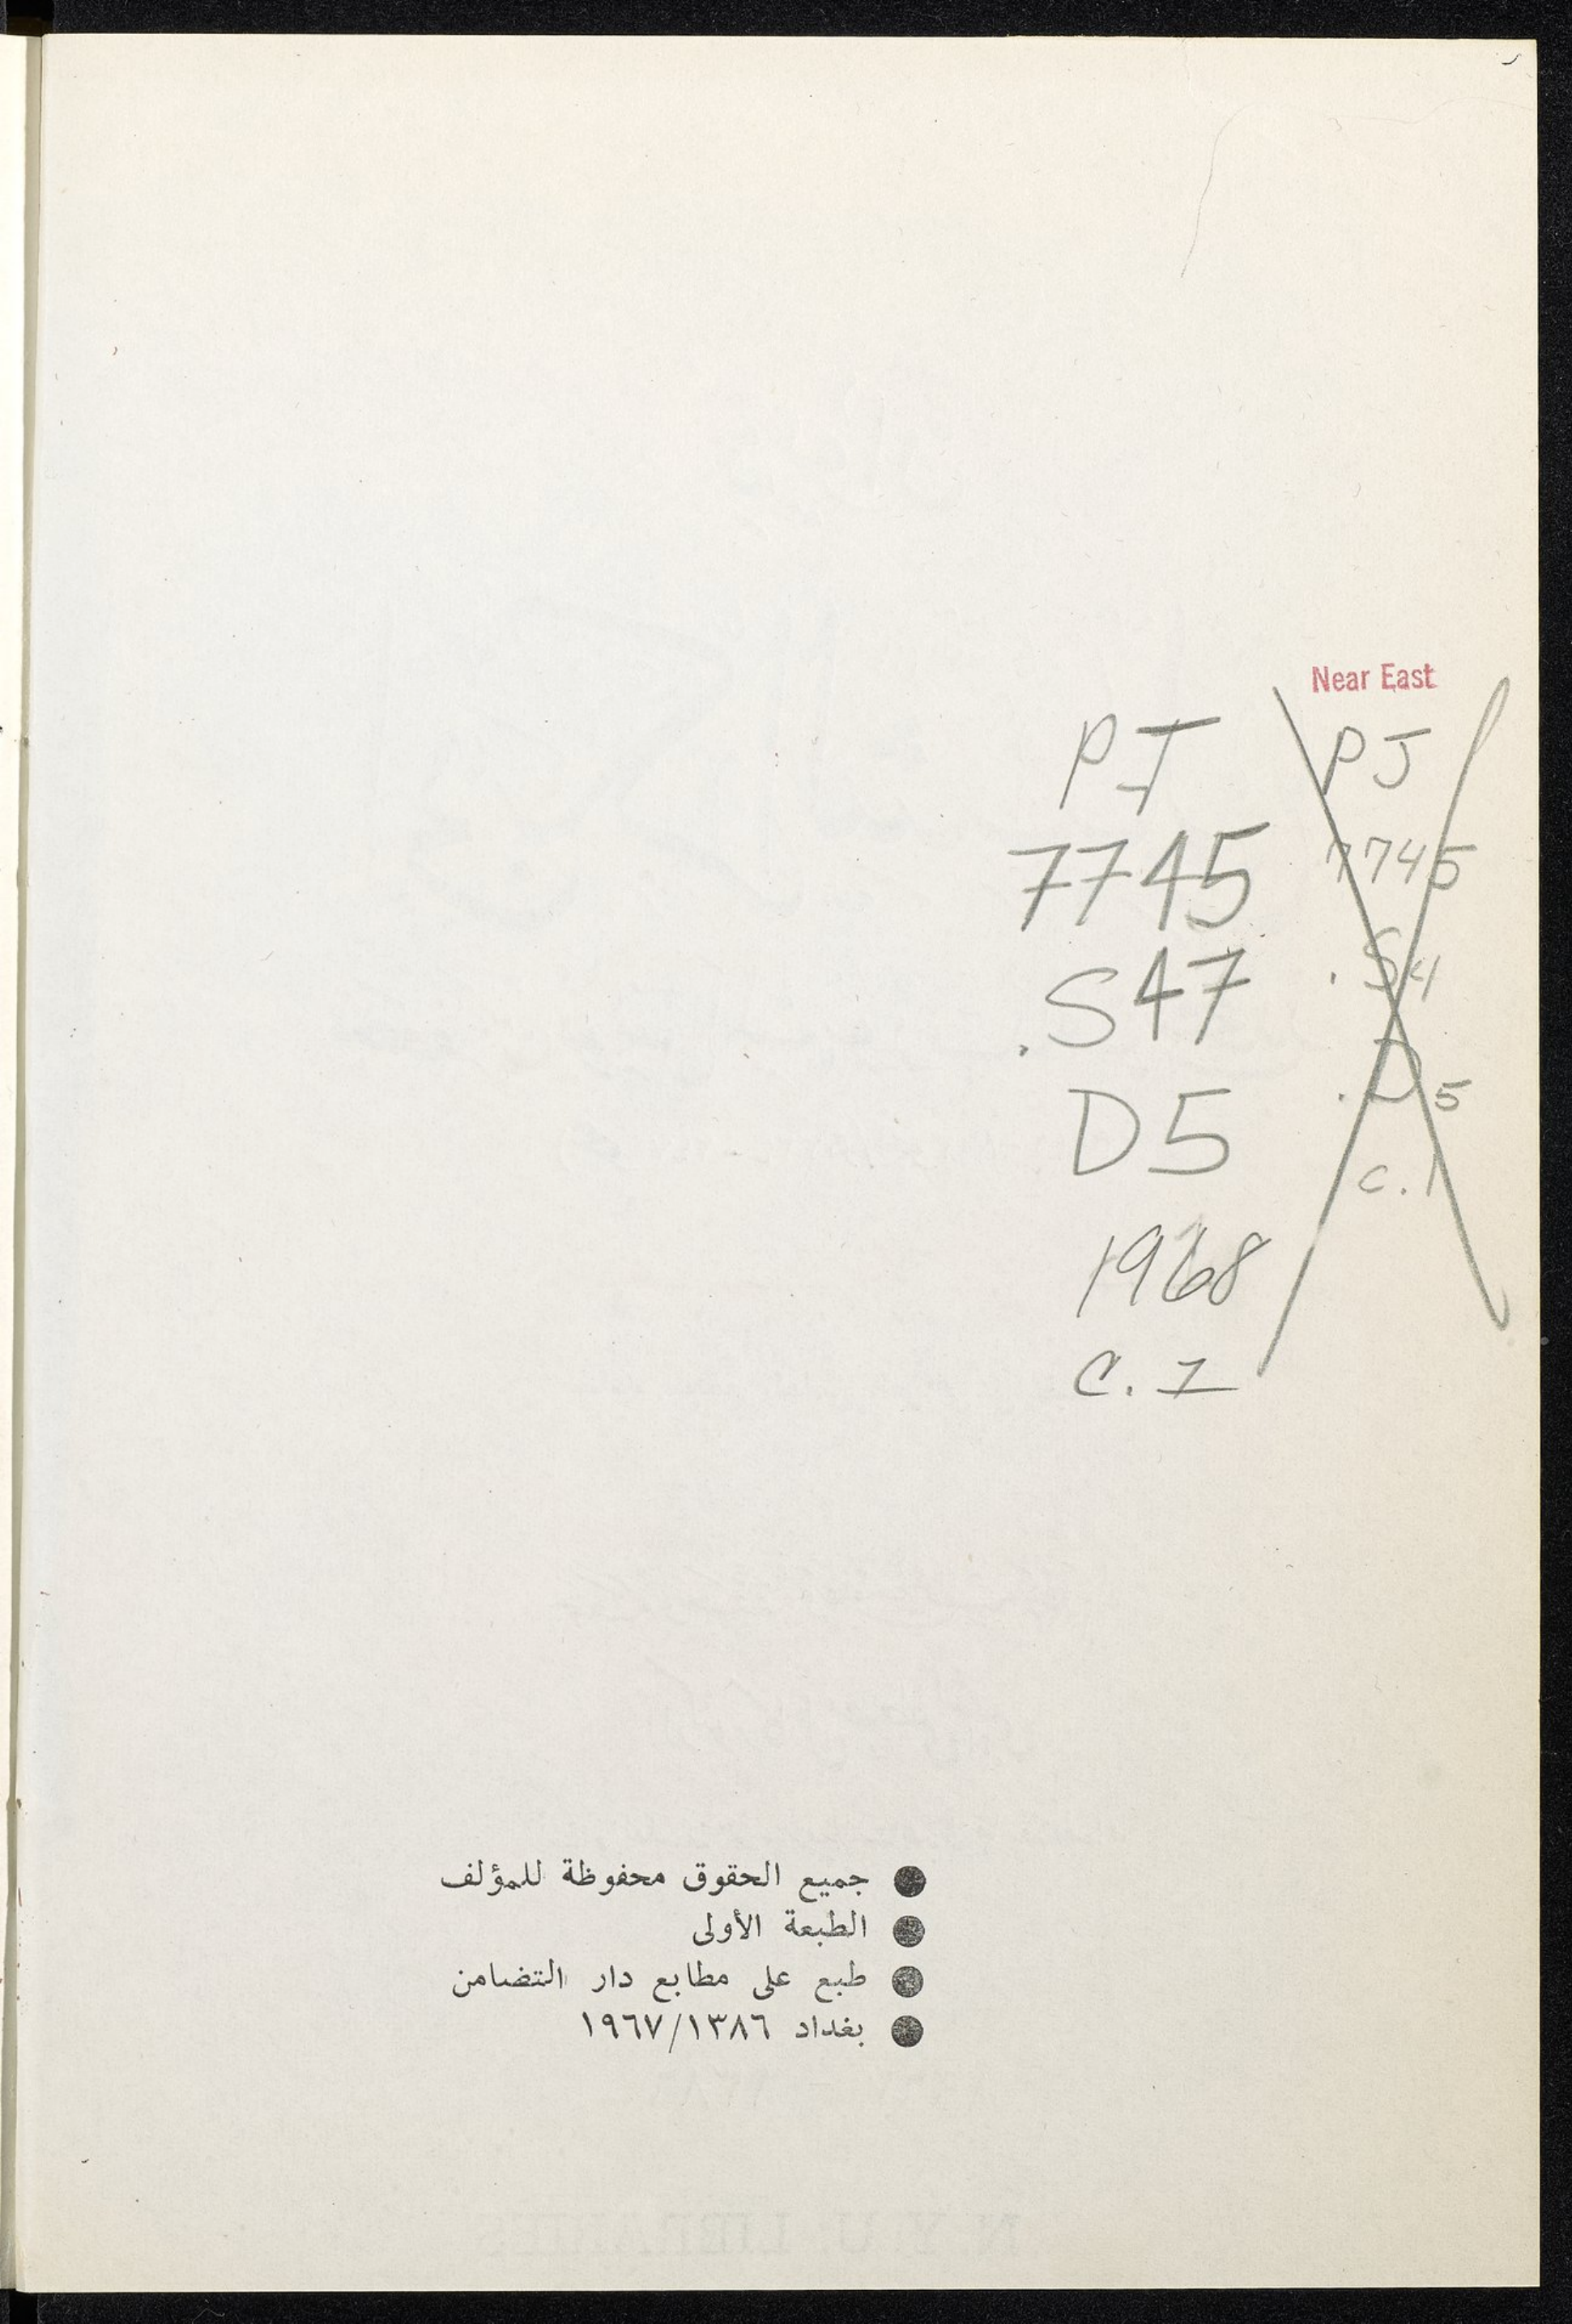 Near East
PJ
7745
.S47
D5
1968
C. 1
PJ
7745
.S4
.D5
c.1
● جميع الحقوق محفوظة للمؤلف
● الطبعة الأولى
● طبع على مطابع دار التضامن
● بغداد ١٩٦٧/١٣٨٦